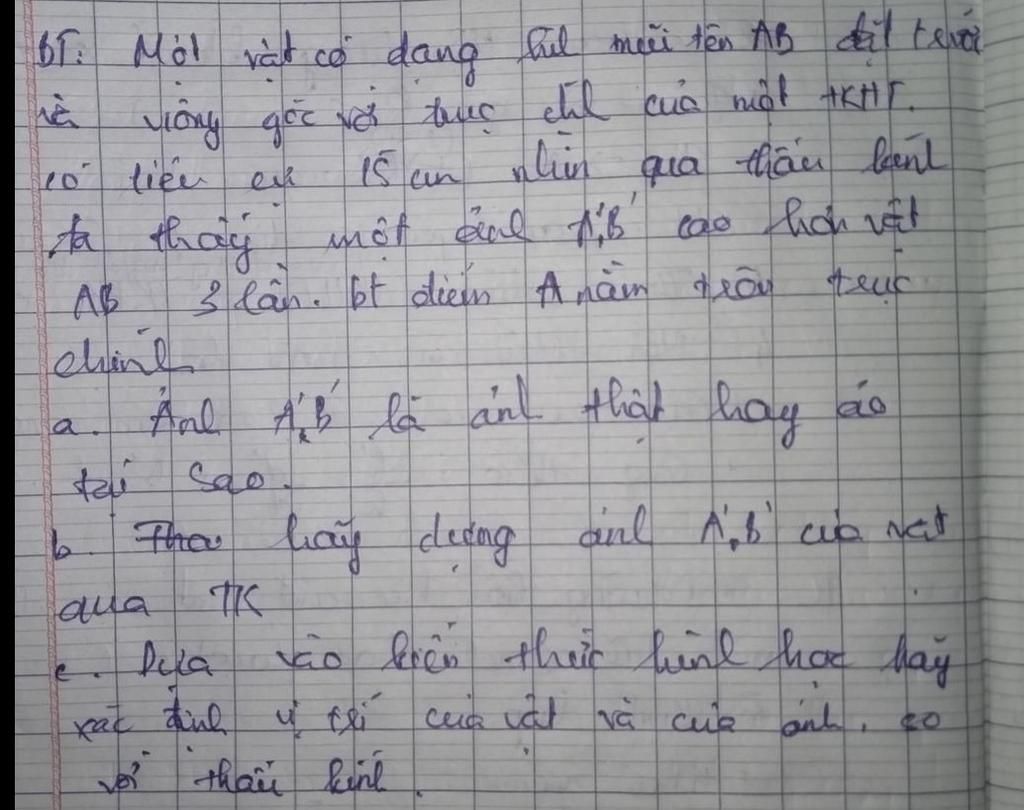 BT: Một vật có dạng hìl mũi tên AB đặt trước
và vuông góc với trục chíl của một TKHT.
có tiêu cự 15 cm nhìn qua thấu kínl
ta thấy một ảnl A'B' cao hơn vật
AB 3 lần. bt điểm A nằm trên trục
chínl
a. Ảnl A'B' là ảnl thật hay ảo
tại sao.
b. hãy dựng ảnl A'B' của vật
qua TK
c. Dựa vào kiến thức hìnl học hãy
xác địnl vị trí của vật và của ảnl. so
với thấu kínl.